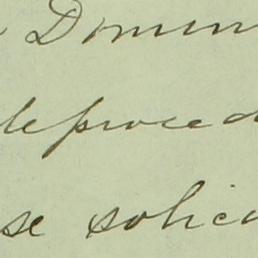 Domin
de proced
se solic